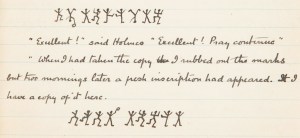 "Excellent!" said Holmes "Excellent! Pray continue"
"When I had taken the copy I rubbed out the marks
but two mornings later a fresh inscription had appeared. I
have a copy of it here.